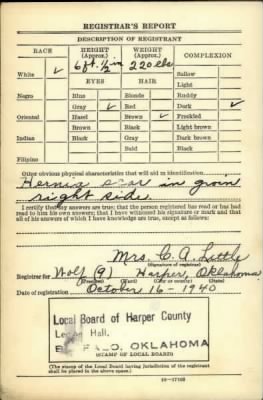 REGISTRAR'S REPORT
DESCRIPTION OF REGISTRANT
RACE HEIGHT (Approx.) WEIGHT (Approx.) COMPLEXION
6 ft. 1/2 in 220 lbs
White ✓ EYES HAIR Sallow
Light
Negro Blue Blonde Ruddy
Gray ✓ Red Dark ✓
Oriental Hazel Brown ✓ Freckled
Brown Black Light brown
Indian Black Gray Dark brown
Bald Black
Filipino
Other obvious physical characteristics that will aid in identification
Hernia scar in groin
right side
I certify that my answers are true; that the person registered has read or has
had read to him his own answers; that I have witnessed his signature or mark and that
all of his answers of which I have knowledge are true, except as follows:
Mrs. C. A. Little
(Signature of registrar)
Registrar for Wolf (9) Harper, Oklahoma
(Precinct) (Ward) (City or county) (State)
Date of registration October 16 - 1940
Local Board of Harper County
Hall,
OKLAHOMA
(STAMP OF LOCAL BOARD)
(The stamp of the Local Board having jurisdiction of the registrant
shall be placed in the above space.)